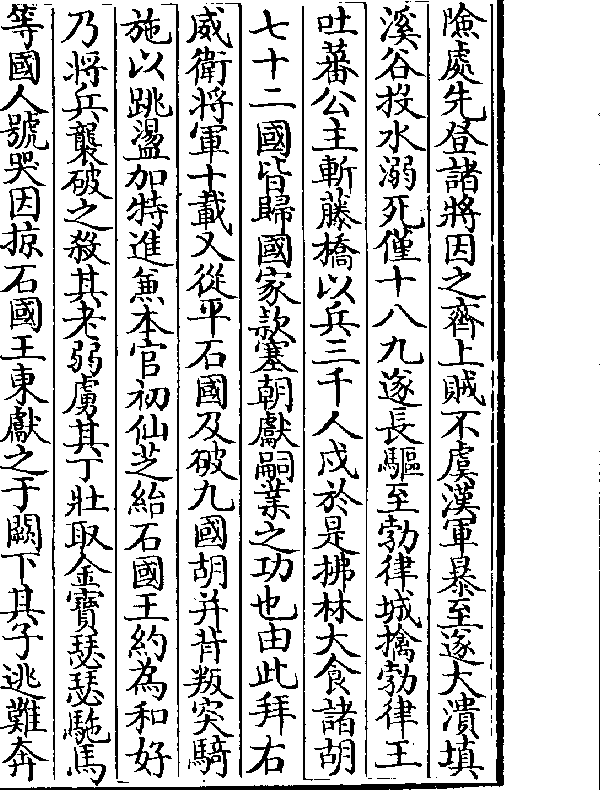 險處先登諸將因之齊上賊不虞漢軍暴至遂大潰填
溪谷投水溺死僅十八九遂長驅至勃律城擒勃律王
吐蕃公主斬藤橋以兵三千人戍於是拂林大食諸胡
七十二國皆歸國家款塞朝獻嗣業之功也由此拜右
威衛將軍十載又從平石國及破九國胡并背叛突騎
施以跳盪加特進兼本官初仙芝紿石國王約為和好
乃將兵襲破之殺其老弱虜其丁壯取金寶瑟瑟駞馬
等國人號哭因掠石國王東獻之于闕下其子逃難奔